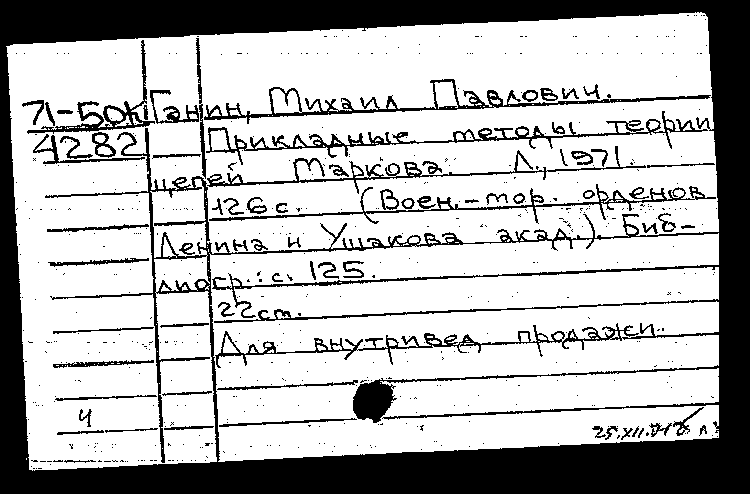 71-50к Ганин, Михаил Павлович.
4282 Прикладные методы теории
цепей Маркова. Л., 1971.
126 с. (Воен.-мор. орденов
Ленина и Ушакова акад.). Биб-
лиогр.: с. 125.
22см.
Для внутривед. продажи.
4
25.XII.